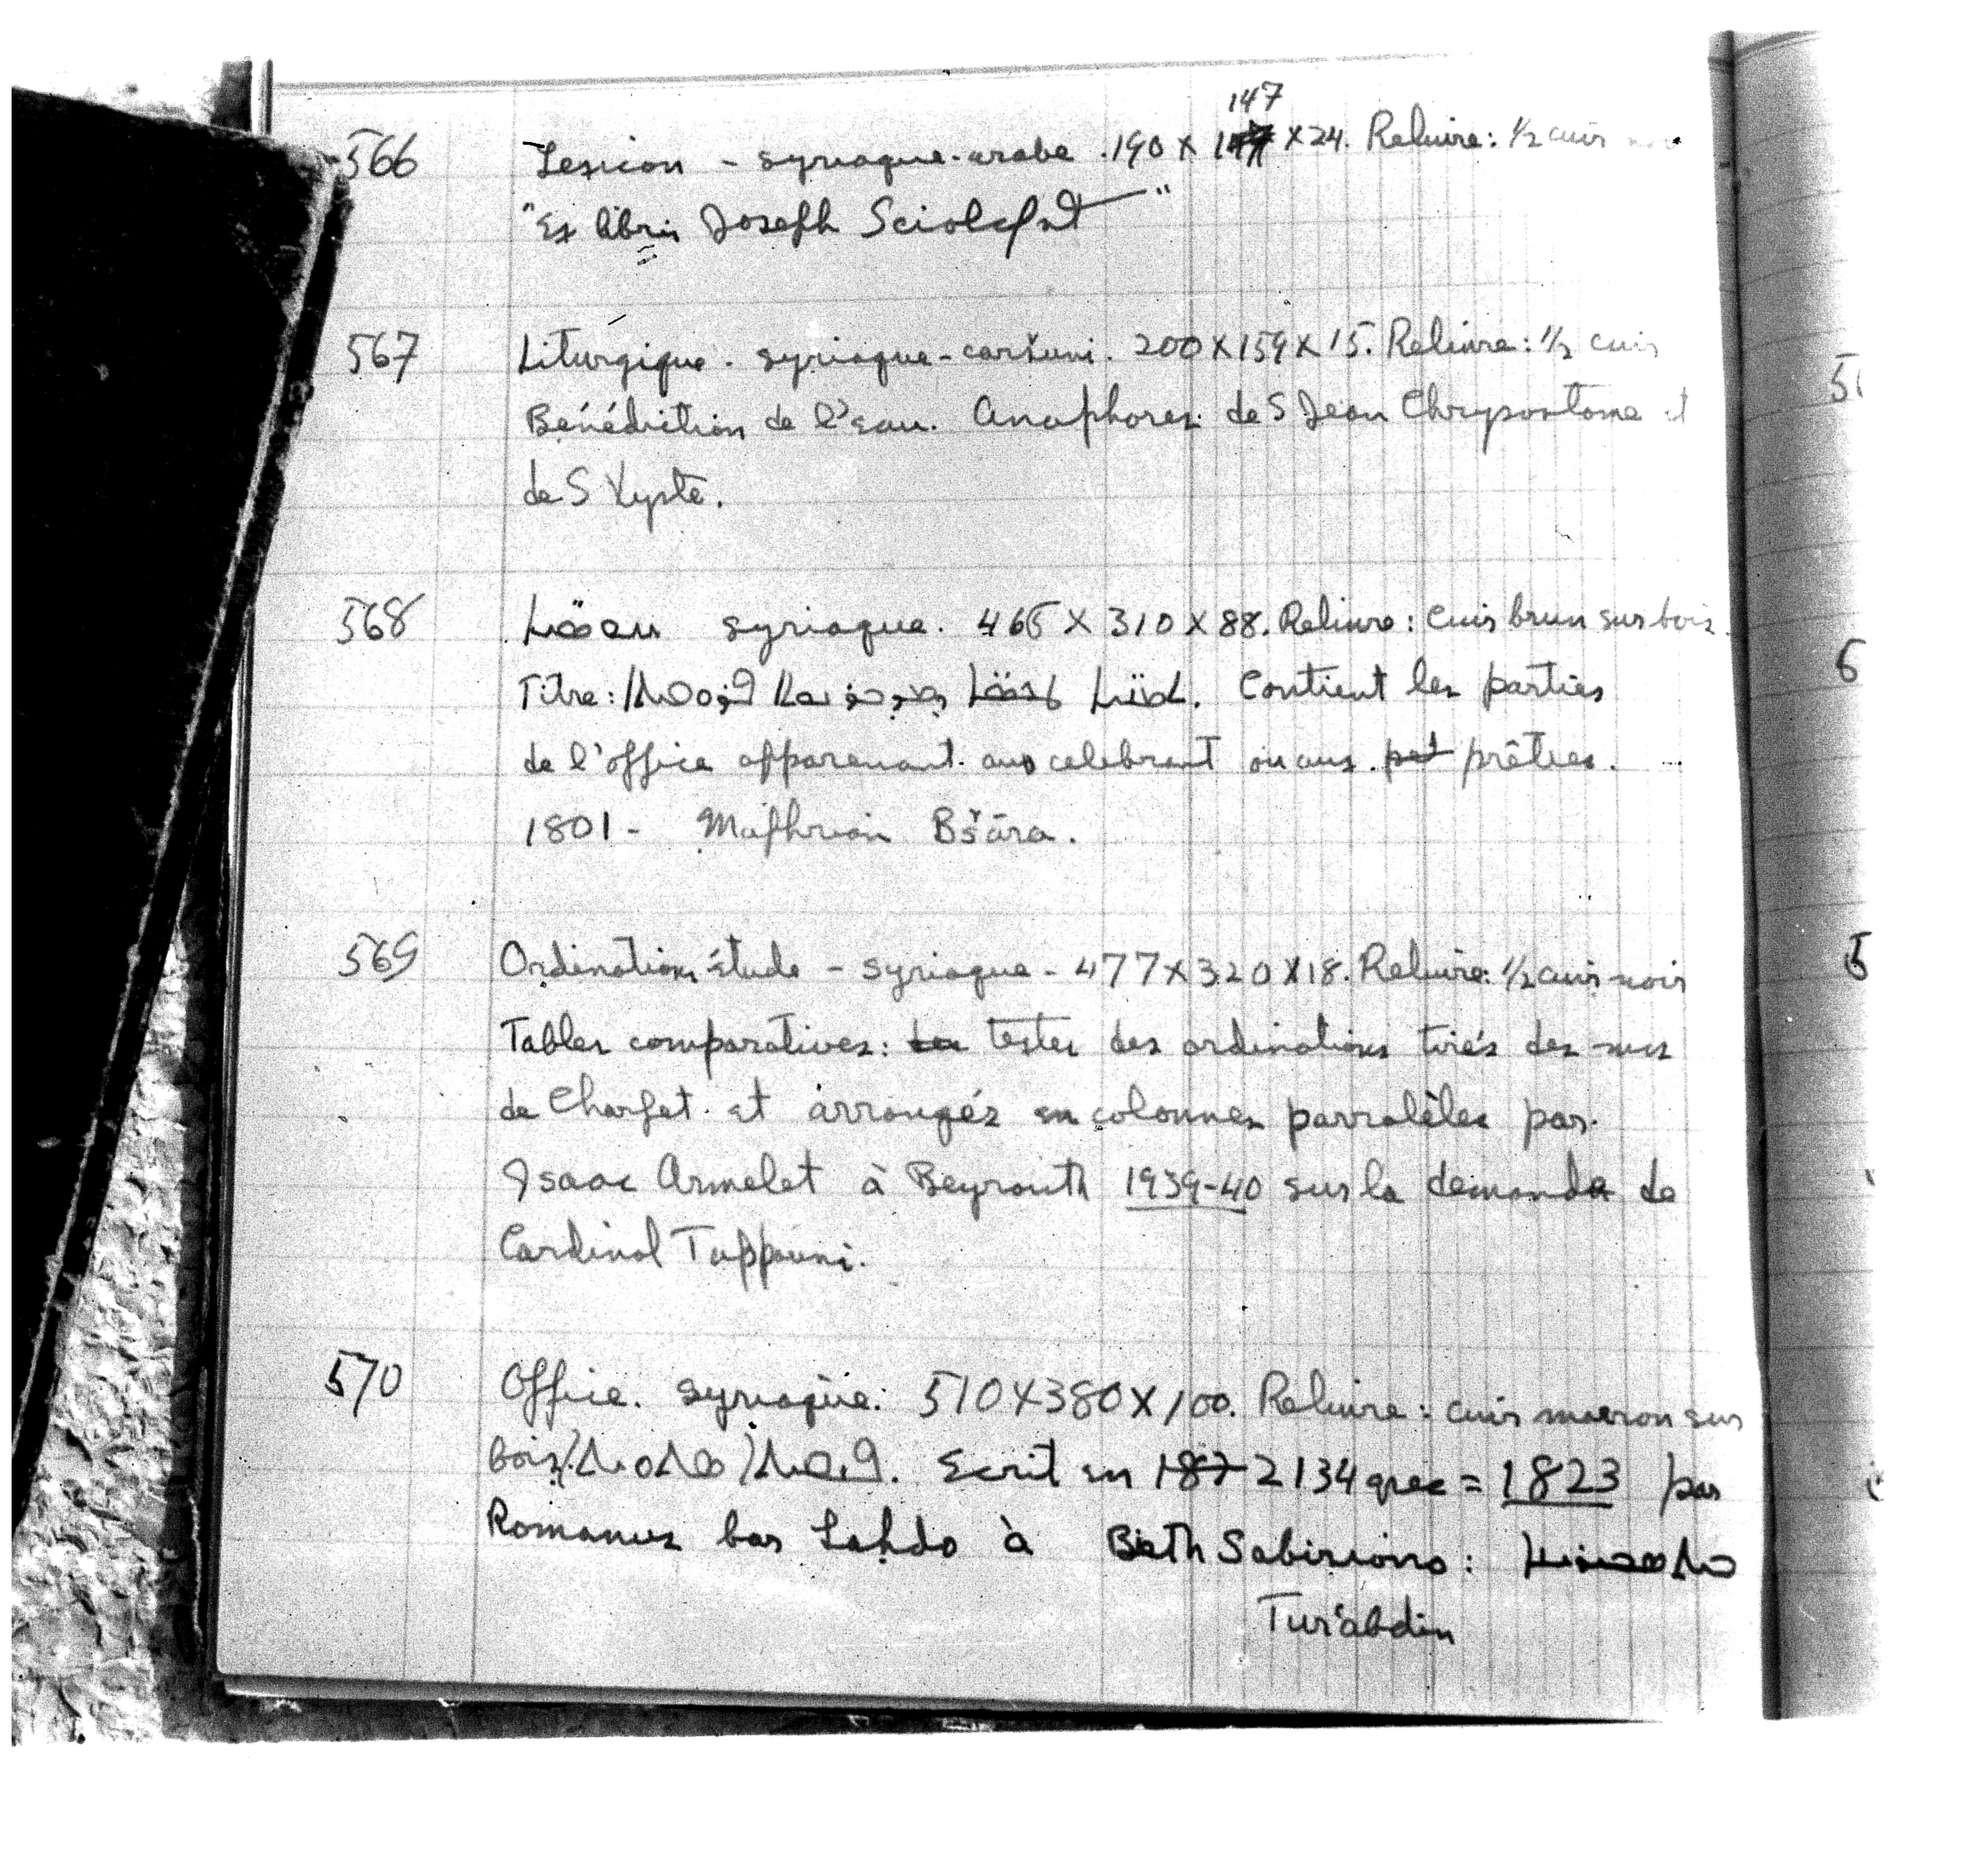 147
566 Lexicon - syriaque-arabe. 190 x 1̶4̶7̶ x 24. Reliure: ½ cuir
"Ex libris Joseph
567 Liturgique. syriaque-caršuni. 200 x 159 x 15. Reliure: ½ cuir
Bénédiction de l'eau. Anaphores de S Jean Chrysostome et
de S Xyste.
568 syriaque. 465 x 310 x 88. Reliure: Cuir brun sur bois.
Titre: Contient les parties
de l'office apparenant aux celebrant ou aux prêtres.
1801 - Maphrian Bšāra.
569 Ordinations étude - syriaque - 477 x 320 x 18. Reliure: ½ cuir noir
Tables comparatives: textes des ordinations tirés des mss
de Charfet et arrangés en colonnes parralèles par
Isaac Armelet à Beyrouth 1939-40 sur la demande de
Cardinal Tappouni.
570 Office. syriaque. 510 x 380 x 100. Reliure: cuir marron sur
bois. Ecrit en 1̶8̶7̶ 2134 grec = 1823 par
Romanus bar Lahdo à Beth Sabiriono:
Tur'abdin
5
6
5